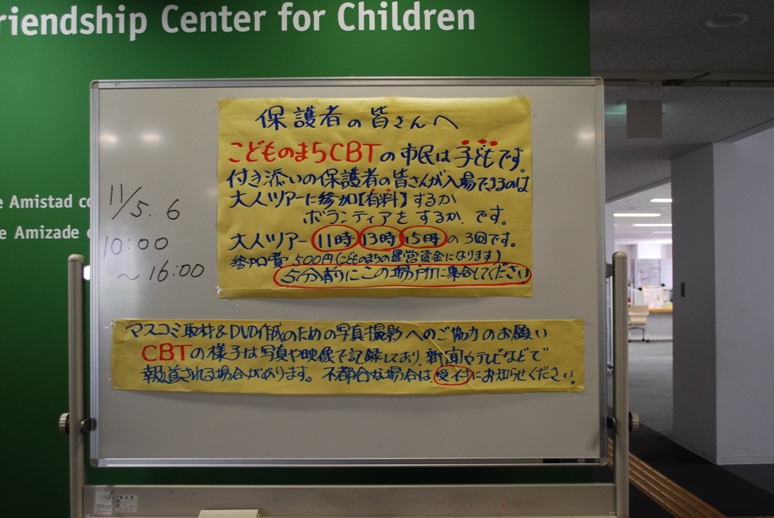 riendship Center for Children
e Amistad co
e Amizade
11/5.6
10:00
～16:00
保護者の皆さんへ
こどものまちCBTの市民は子どもです。
付き添いの保護者の皆さんが入場できるのは
大人ツアーに参加【有料】するか
ボランティアをするか、です。
大人ツアー 11時 13時 15時 の3回です。
参加費 500円(こどものまちの運営資金になります)
5分前にこの場所に集合してください
マスコミ取材&DVD作成のための写真撮影へのご協力のお願い
CBTの様子は写真や映像で記録しており、新聞やテレビなどで
報道される場合があります。不都合な場合は受付にお知らせください。